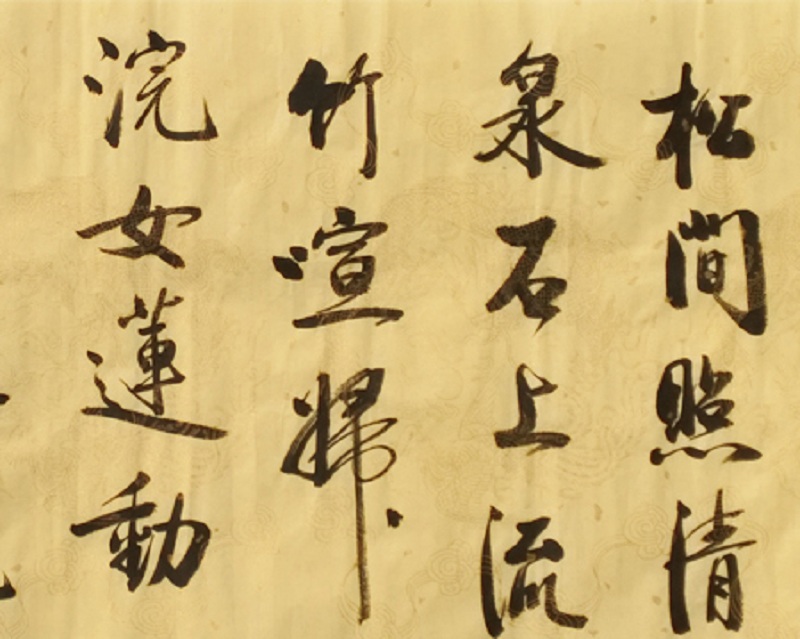 松間照清
泉石上流
竹喧歸
浣女蓮動